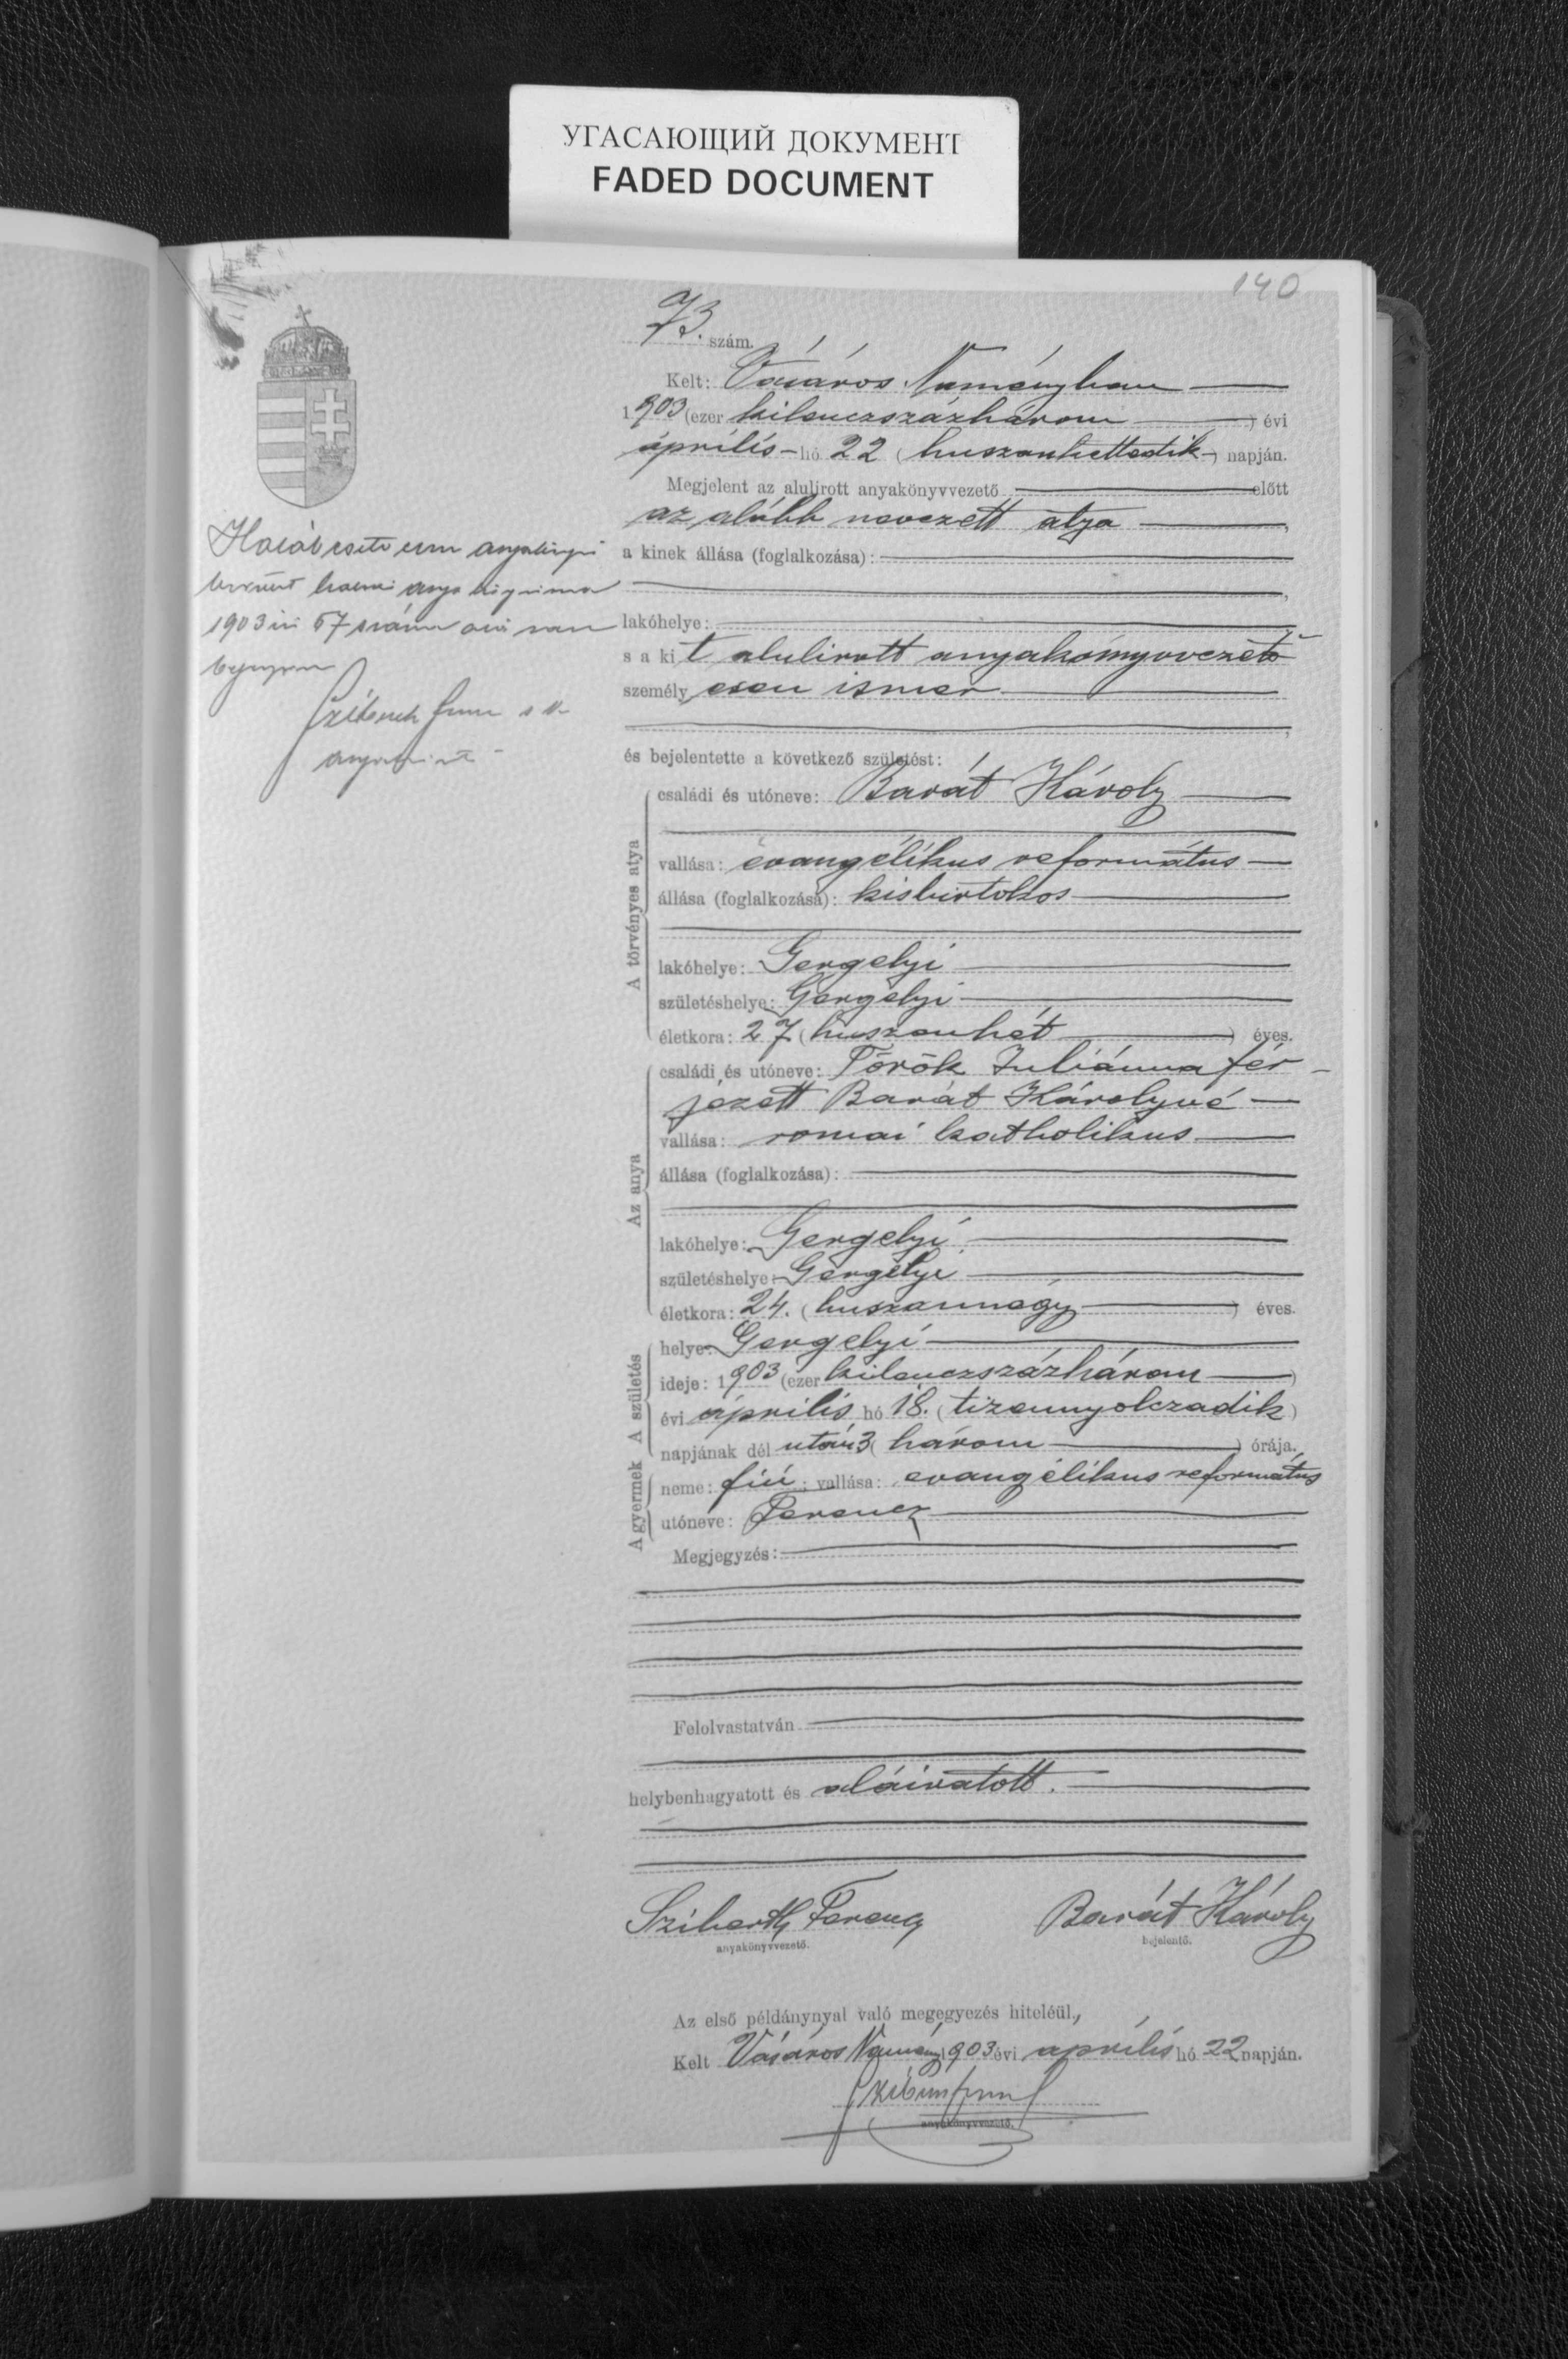 УГАСАЮЩИЙ ДОКУМЕНТ
FADED DOCUMENT
140
73. szám.
Kelt: Vásáros Naményban
1903 (ezer kilenczszázhárom) évi
április hó 22 (huszonkettedik) napján.
Megjelent az alulirott anyakönyvvezető előtt
az alább nevezett atya,
a kinek állása (foglalkozása):
lakóhelye:
s a kit alulirott anyakönyvvezető
személyesen ismer
és bejelentette a következő születést:
A törvényes atya
családi és utóneve: Barát Károly
vallása: evangélikus református
állása (foglalkozása): kisbirtokos
lakóhelye: Gergelyi
születéshelye: Gergelyi
életkora: 27 (huszonhét) éves.
Az anya
családi és utóneve: Török Juliánna fér-
jezett Barát Károlyné
vallása: romai katholikus
állása (foglalkozása):
lakóhelye: Gergelyi
születéshelye: Gergelyi
életkora: 24. (huszonnégy) éves.
A születés
helye: Gergelyi
ideje: 1903 (ezer kilenczszázhárom)
évi április hó 18. (tizennyolczadik)
napjának dél után 3 (három) órája.
A gyermek
neme: fiú; vallása: evangélikus református
utóneve: Ferencz
Megjegyzés:
Felolvastatván
helybenhagyatott és aláiratott.
Ferencz Barát Károly
anyakönyvvezető. bejelentő.
Az első példánynyal való megegyezés hiteléül,
Kelt Vásáros Namény 1903 évi április hó 22 napján.
anyakönyvvezető.
1903 57